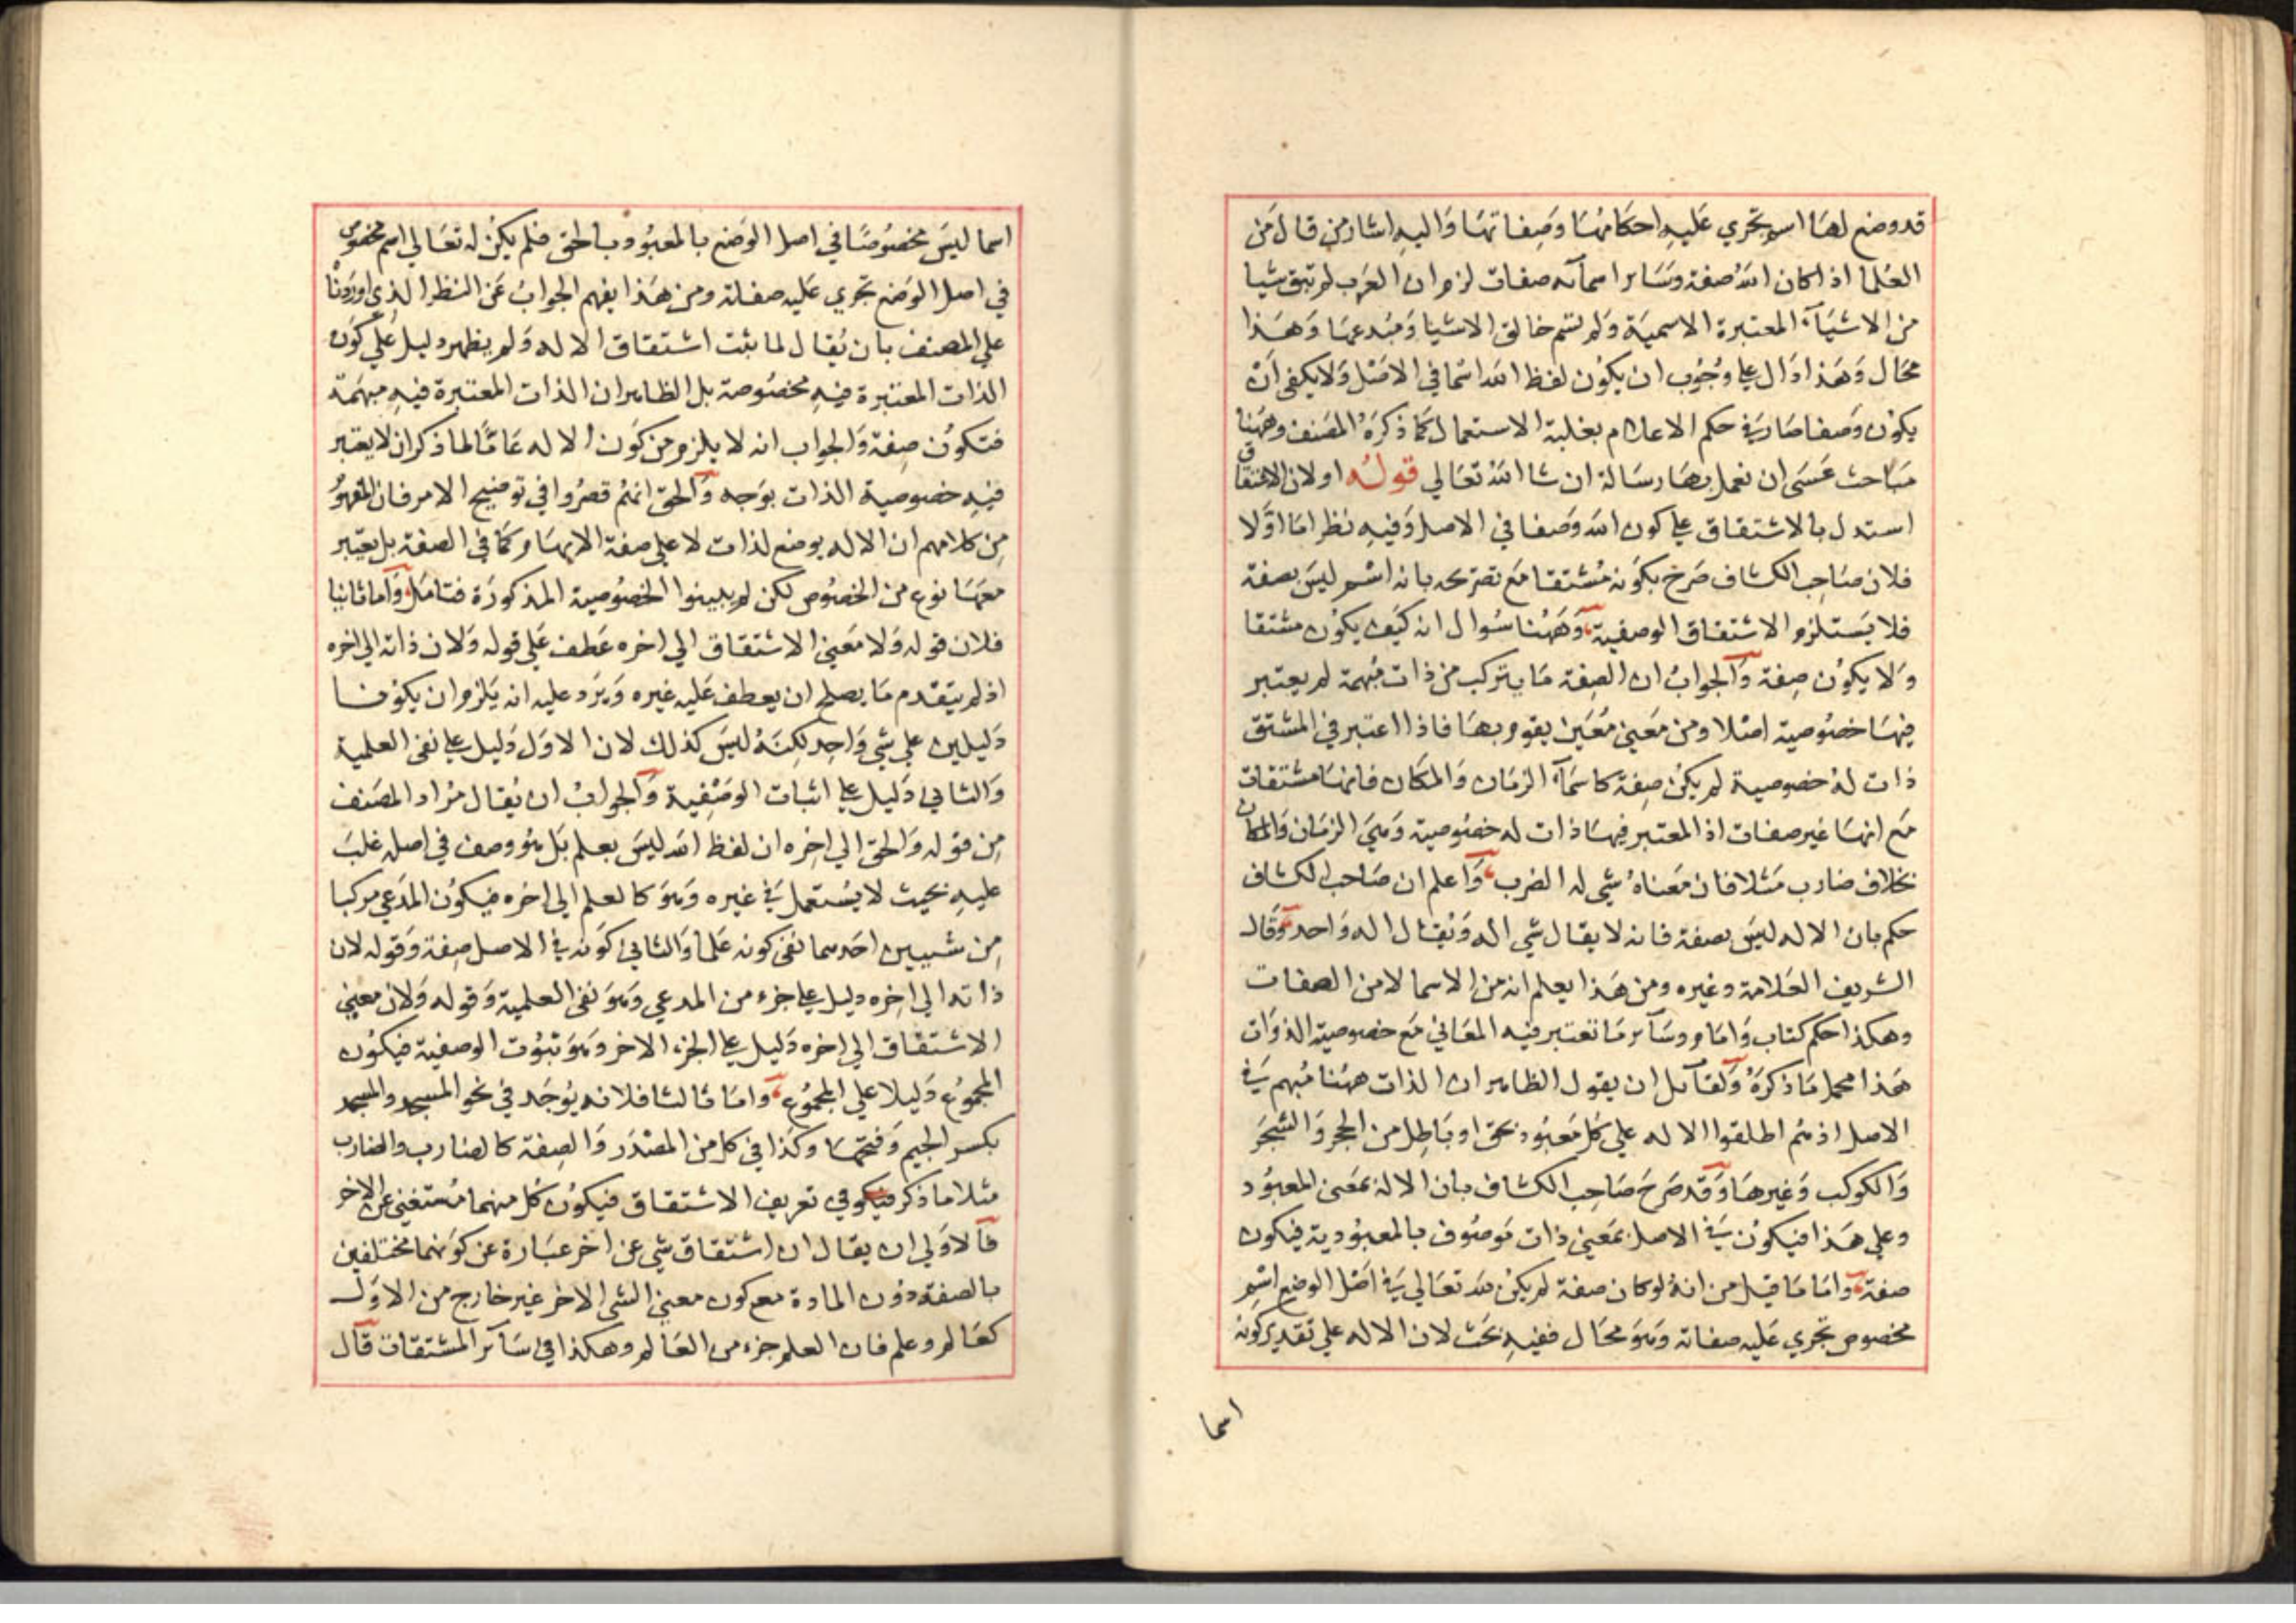 قد وضع لها اسم تجري عليه احكامها وصفاتها واليه اشار من قال من
العلما اذا كان الله صفة وسائر اسمائه صفات لزم ان العرب لم تبق شيا
من الاشياء المعتبرة الا سميته ولم تسم خالق الاشيا ومبدعها وهذا
محال وهذا دال علي وجوب ان يكون لفظ الله اسما في الاصل ولا يكفي ان
يكون وصفا صار في حكم الاعلام بغلبة الاستعمال كما ذكره المصنف وههنا
مباحث عسي ان نعمل بها رسالة ان شا الله تعالي قوله او لان الاشتقاق
استدل بالاشتقاق علي كون الله وصفا في الاصل وفيه نظر اما اولا
فلان صاحب الكشاف صرح بكونه مشتقا مع تصريحه بانه اسم ليس بصفة
فلا يستلزم الاشتقاق الوصفية وههنا سوال انه كيف يكون مشتقا
ولا يكون صفة والجواب ان الصفة ما يتركب من ذات مبهمة لم يعتبر
فيها خصوصية اصلا ومن معني معين يقوم بها فاذا اعتبر في المشتق
ذات له خصوصية لم يكن صفة كاسماء الزمان والمكان فانها مشتقات
مع انها غير صفات اذ المعتبر فيها ذات له خصوصية وهي الزمان والمكان
بخلاف ضارب مثلا فان معناه شي له الضرب واعلم ان صاحب الكشاف
حكم بان الاله ليس بصفة فانه لا يقال شي اله ويقال اله واحد وقال
الشريف العلامة وغيره ومن هذا يعلم انه من الاسما لا من الصفات
وهكذا حكم كتاب وامام وسائر ما تعتبر فيه المعاني مع خصوصية الذوات
هذا محمل ما ذكره ولقائل ان يقول الظاهر ان الذات ههنا مبهم في
الاصل اذ هم اطلقوا الاله علي كل معبود بحق او باطل من الحجر والشجر
والكوكب وغيرها وقد صرح صاحب الكشاف بان الاله بمعني المعبود
وعلي هذا فيكون في الاصل بمعني ذات موصوف بالمعبودية فيكون
صفة واما ما قيل من انه لو كان صفة لم يكن لله تعالي في اصل الوضع اسم
مخصوص تجري عليه صفاته وهو محال ففيه بحث لان الاله علي تقدير كونه
اسما
اسما ليس مخصوصا في اصل الوضع بالمعبود بالحق فلم يكن له تعالي اسم مخصوص
في اصل الوضع تجري عليه صفاته ومن هذا يفهم الجواب عن النظر الذي اوردنا
علي المصنف بان يقال لما ثبت اشتقاق الاله ولم يظهر دليل علي كون
الذات المعتبرة فيه مخصوصة بل الظاهر ان الذات المعتبرة فيه مبهمة
فتكون صفة والجواب انه لا يلزم من كون الاله عاما لما ذكر ان لا يعتبر
فيه خصوصية الذات بوجه والحق انهم قصروا في توضيح الامر فان المفهوم
من كلامهم ان الاله يوضع لذات لا علي صفة الابهام كما في الصفة بل يعتبر
معها نوع من الخصوص لكن لم يبينوا الخصوصية المذكورة فتامل واما ثانيا
فلان قوله ولا معني الاشتقاق الي اخره عطف علي قوله ولان ذاته الي اخره
اذ لم يتقدم ما يصلح ان يعطف عليه غيره ويرد عليه انه يلزم ان يكونا
دليلين علي شي واحد لكنه ليس كذلك لان الاول دليل علي نفي العلمية
والثاني دليل علي اثبات الوصفية والجواب ان يقال مراد المصنف
من قوله والحق الي اخره ان لفظ الله ليس بعلم بل هو وصف في اصله غلب
عليه بحيث لا يستعمل في غيره وهو كالعلم الي اخره فيكون المدعي مركبا
من شييين احدهما نفي كونه علما والثاني كونه في الاصل صفة وقوله لان
ذاته الي اخره دليل علي جزء من المدعي وهو نفي العلمية وقوله ولان معني
الاشتقاق الي اخره دليل علي الجزء الاخر وهو ثبوت الوصفية فيكون
المجموع دليلا علي المجموع واما ثالثا فلانه يوجد في نحو المسجد والمسجد
بكسر الجيم وفتحها وكذا في كل من المصدر والصفة كالضارب والضارب
مثلا ما ذكر في تعريف الاشتقاق فيكون كل منهما مستغني عن الاخر
فالاولي ان يقال ان اشتقاق شي عن اخر عبارة عن كونهما مختلفين
بالصفة دون المادة مع كون معني الشي الاخر غير خارج من الاول
كعالم وعلم فان العلم جزء من العالم وهكذا في سائر المشتقات قال